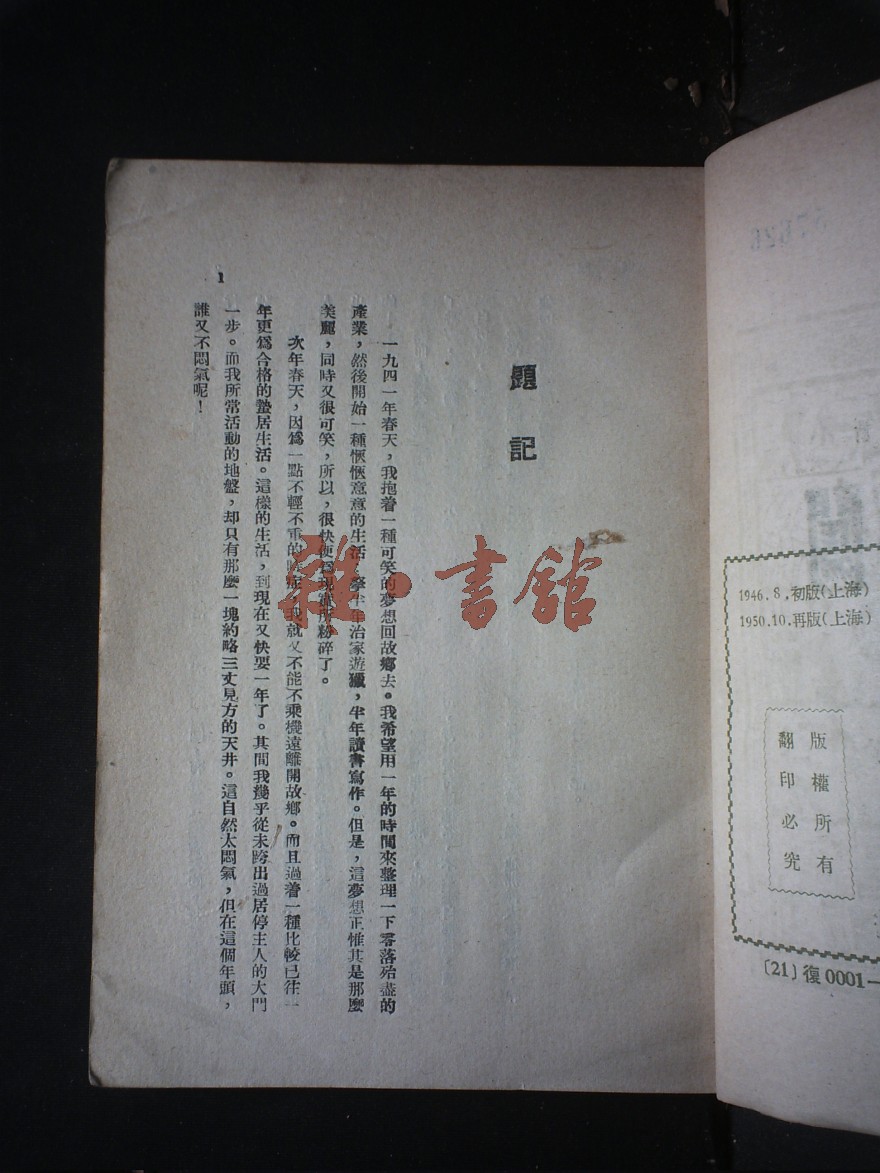 1946.8.初版(上海)
1950.10.再版(上海)
版權所有
翻印必究
〔21〕復0001—
題記
一九四一年春天，我抱着一種可笑的夢想回故鄉去。我希望用一年的時間來整理一下零落殆盡的
產業，然後開始一種愜愜意意的生活，半年治家遊獵，半年讀書寫作。但是，這夢想正惟其是那麼
美麗，同時又很可笑，所以，很快便爲現實所粉碎了。
次年春天，因爲一點不輕不重的，我就又不能不乘機遠離開故鄉。而且過着一種比較已往一
年更爲合格的蟄居生活。這樣的生活，到現在又快要一年了。其間我幾乎從未跨出過居停主人的大門
一步。而我所常活動的地盤，却只有那麼一塊約略三丈見方的天井。這自然太悶氣，但在這個年頭，
誰又不悶氣呢！
1
雜·書館